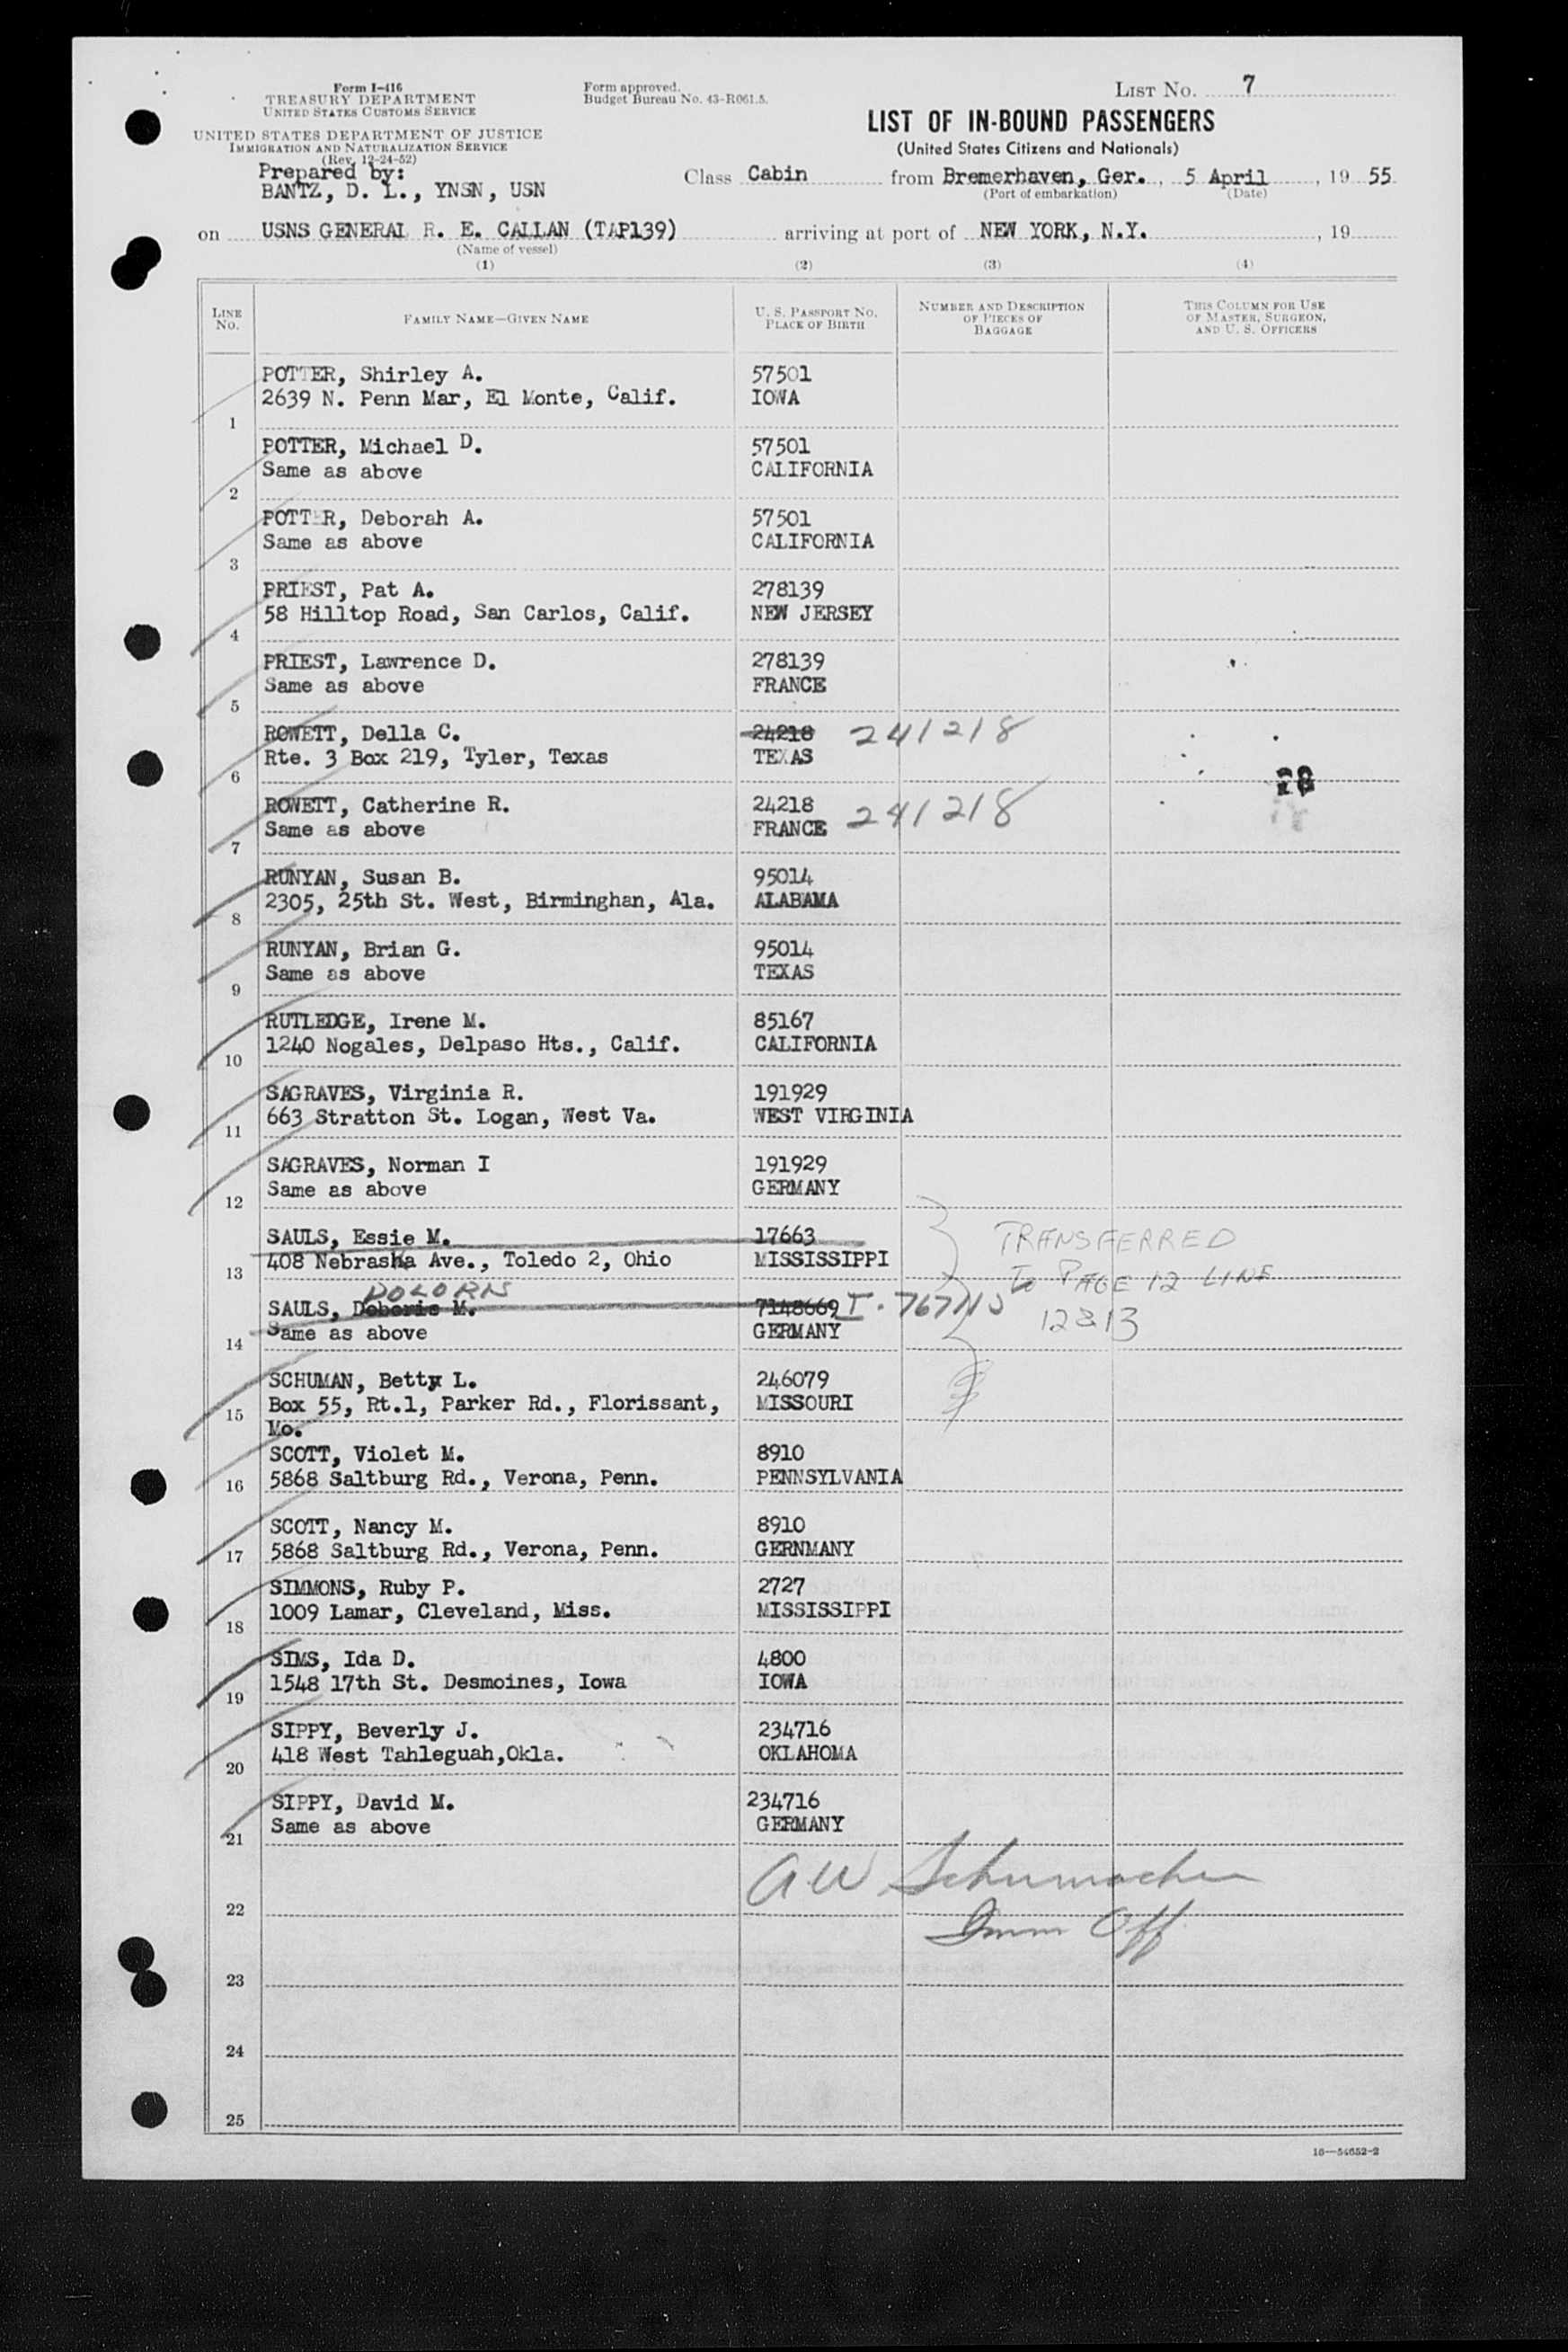 Form I-416
TREASURY DEPARTMENT
UNITED STATES CUSTOMS SERVICE
UNITED STATES DEPARTMENT OF JUSTICE
IMMIGRATION AND NATURALIZATION SERVICE
(Rev. 12-24-52)
Form approved.
Budget Bureau No. 43-R061.5.
LIST NO. 7
LIST OF IN-BOUND PASSENGERS
(United States Citizens and Nationals)
Prepared by:
BANTZ, D. L., YNSN, USN
Class Cabin from Bremerhaven, Ger., 5 April, 19 55
(Port of embarkation) (Date)
on USNS GENERAL R. E. CALLAN (TAP139) arriving at port of NEW YORK, N.Y., 19
(Name of vessel)
(1) (2) (3) (4)
LINE NO. FAMILY NAME—GIVEN NAME U. S. PASSPORT NO. PLACE OF BIRTH NUMBER AND DESCRIPTION OF PIECES OF BAGGAGE THIS COLUMN FOR USE OF MASTER, SURGEON, AND U. S. OFFICERS
POTTER, Shirley A. 57501
2639 N. Penn Mar, El Monte, Calif. IOWA
1
POTTER, Michael D. 57501
Same as above CALIFORNIA
2
POTTER, Deborah A. 57501
Same as above CALIFORNIA
3
PRIEST, Pat A. 278139
58 Hilltop Road, San Carlos, Calif. NEW JERSEY
4
PRIEST, Lawrence D. 278139
Same as above FRANCE
5
ROWETT, Della C. 24218 241218
Rte. 3 Box 219, Tyler, Texas TEXAS
6
28
ROWETT, Catherine R. 24218 241218
Same as above FRANCE
7
RUNYAN, Susan B. 95014
2305, 25th St. West, Birminghan, Ala. ALABAMA
8
RUNYAN, Brian G. 95014
Same as above TEXAS
9
RUTLEDGE, Irene M. 85167
1240 Nogales, Delpaso Hts., Calif. CALIFORNIA
10
SAGRAVES, Virginia R. 191929
663 Stratton St. Logan, West Va. WEST VIRGINIA
11
SAGRAVES, Norman I 191929
Same as above GERMANY
12
SAULS, Essie M. 17663 TRANSFERRED
408 Nebraska Ave., Toledo 2, Ohio MISSISSIPPI
13
To PAGE 12 LINE
DOLORIS
SAULS, Deboris M. 7148669 I-767
12 & 13
Same as above GERMANY
14
SCHUMAN, Betty L. 246079
Box 55, Rt.1, Parker Rd., Florissant, MISSOURI
15
Mo.
SCOTT, Violet M. 8910
5868 Saltburg Rd., Verona, Penn. PENNSYLVANIA
16
SCOTT, Nancy M. 8910
5868 Saltburg Rd., Verona, Penn. GERNMANY
17
SIMMONS, Ruby P. 2727
1009 Lamar, Cleveland, Miss. MISSISSIPPI
18
SIMS, Ida D. 4800
1548 17th St. Desmoines, Iowa IOWA
19
SIPPY, Beverly J. 234716
418 West Tahleguah,Okla. OKLAHOMA
20
SIPPY, David M. 234716
Same as above GERMANY
21
AW Schumacher
22
Imm Off
23
24
25
16—54652-2